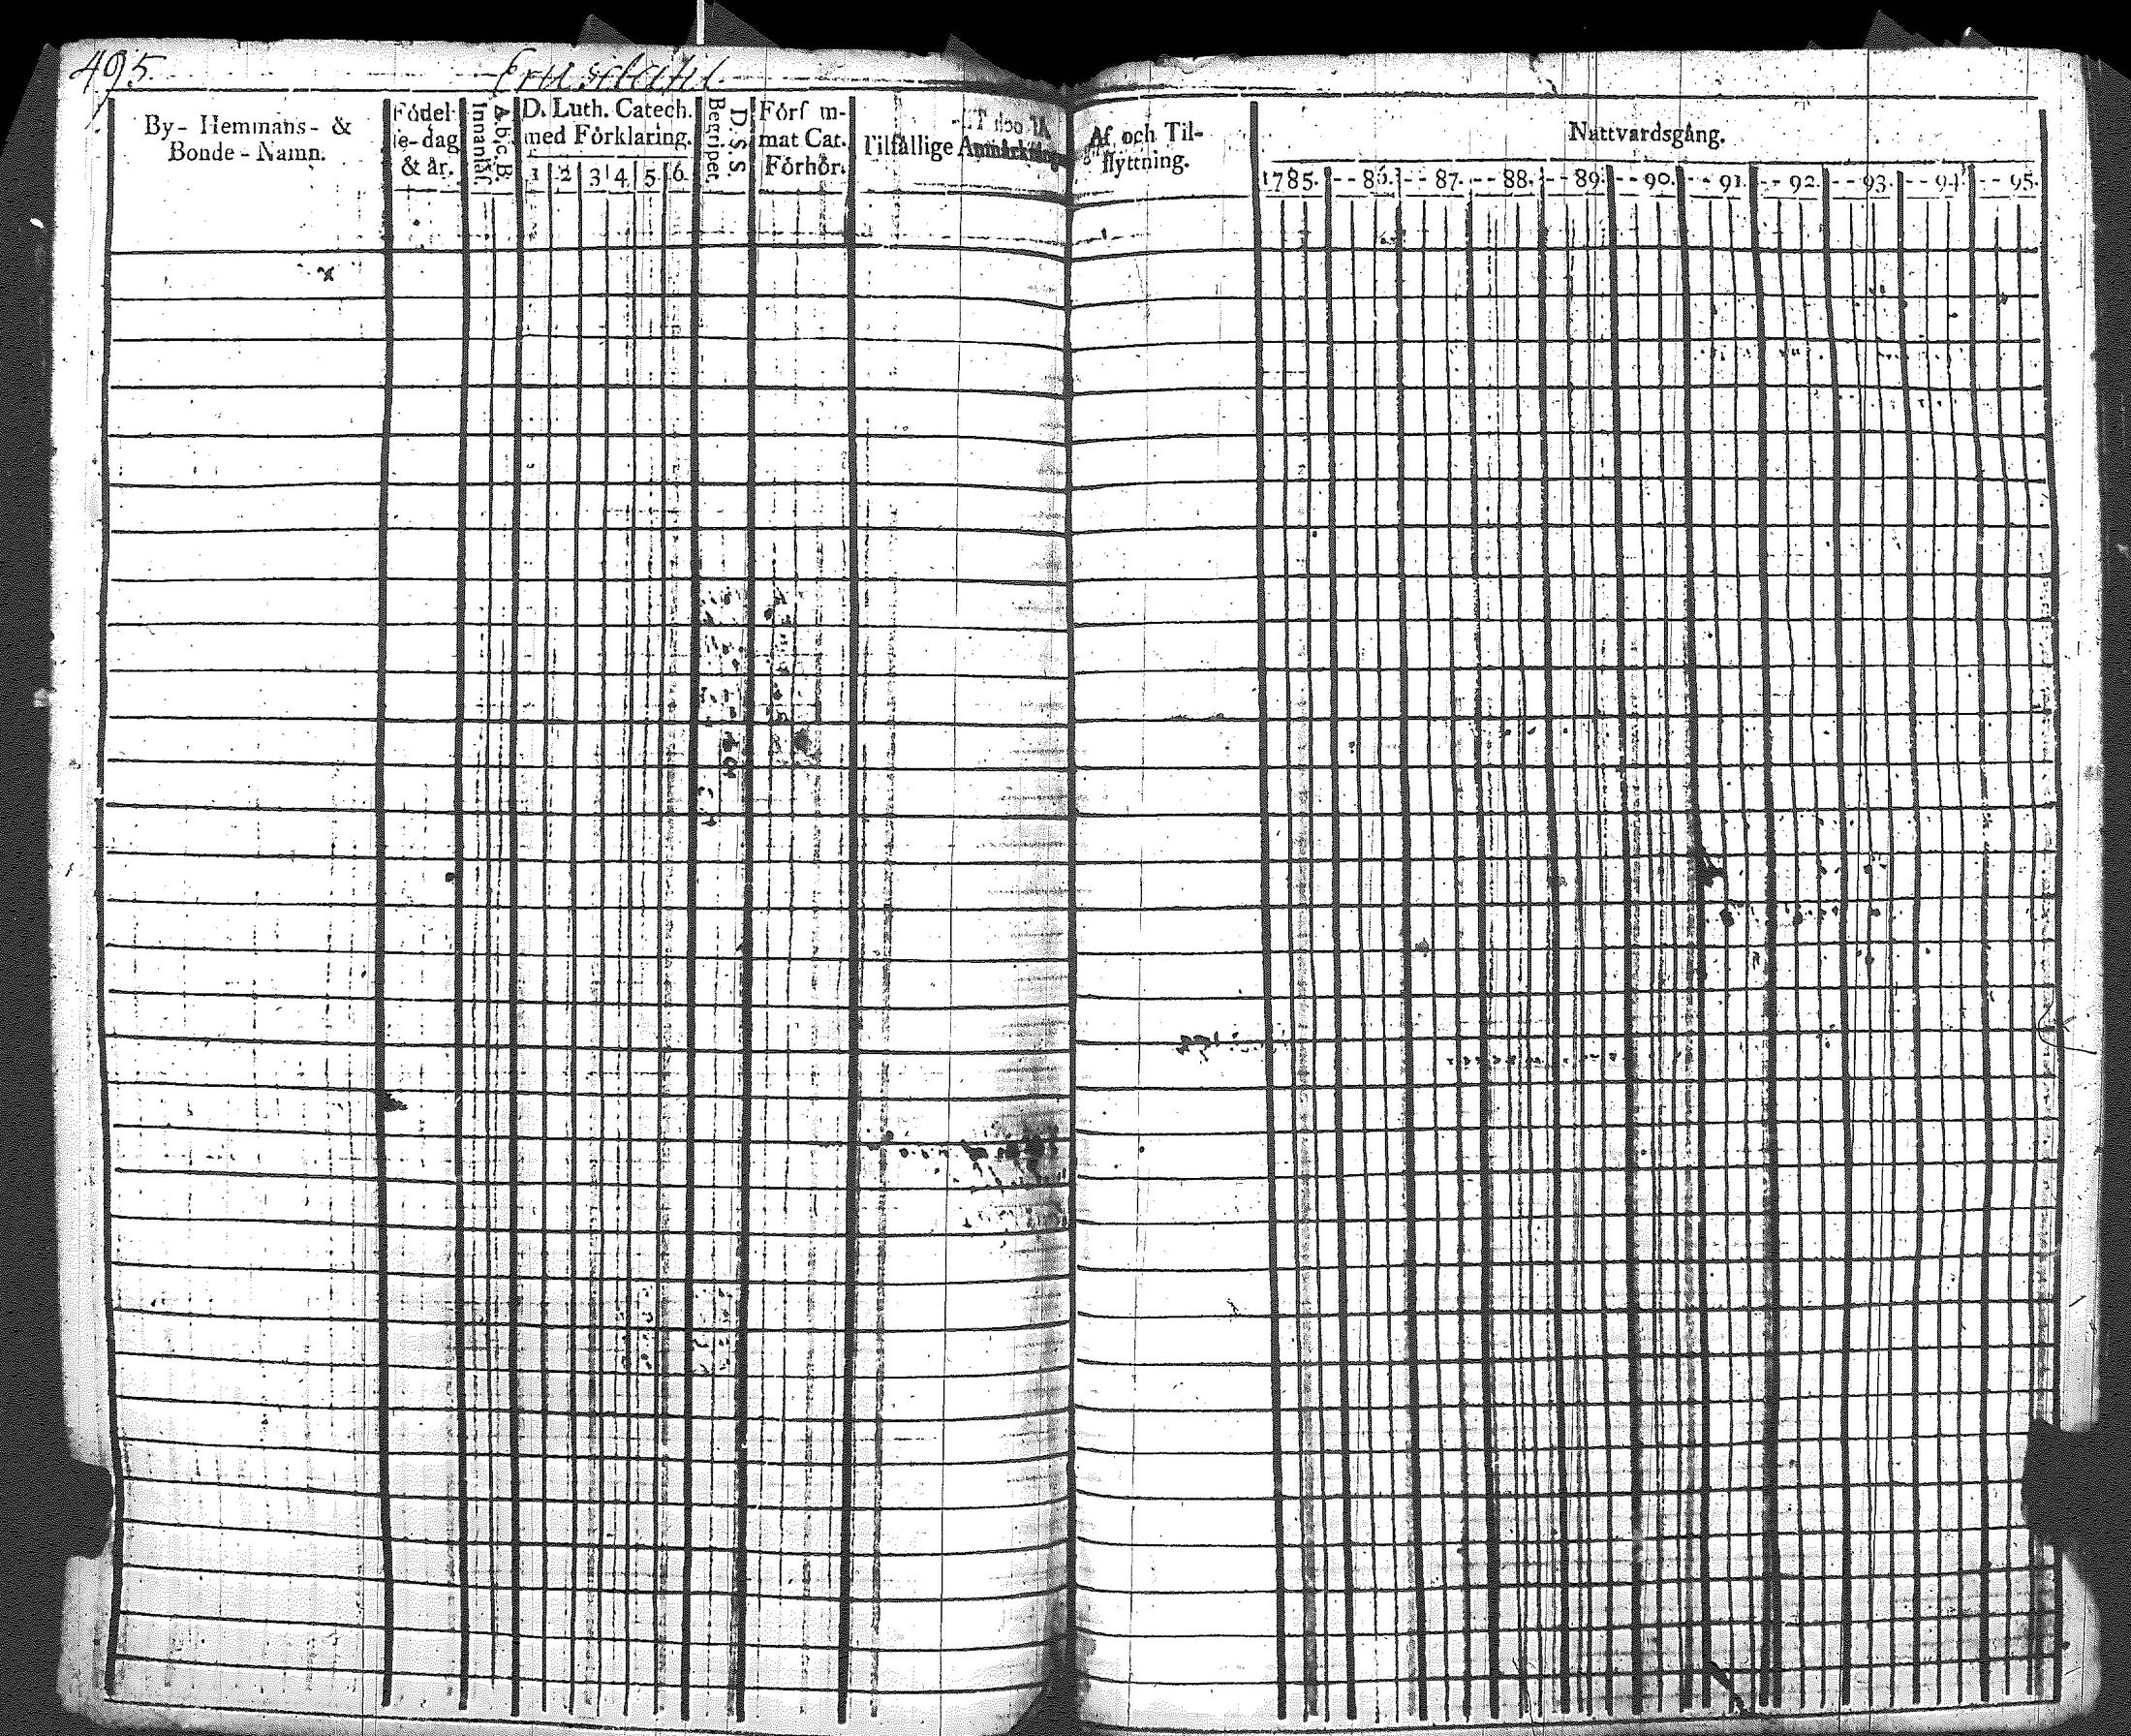 495
By- Hemmans- &
Bonde-Namn.
Födel-
se-dag
& år.
Innanläs.
A.b.c.B.
D. Luth. Catech.
med Förklaring.
1 2 3 4 5 6
Begriper.
D. S. S
Förs m-
mat Cat.
Förhör.
Tilfällige Anmärkning
Af och Til-
flyttning.
Nattvardsgång.
1785. --86. --87. --88. --89. --90. --91. --92. --93. --94. --95.